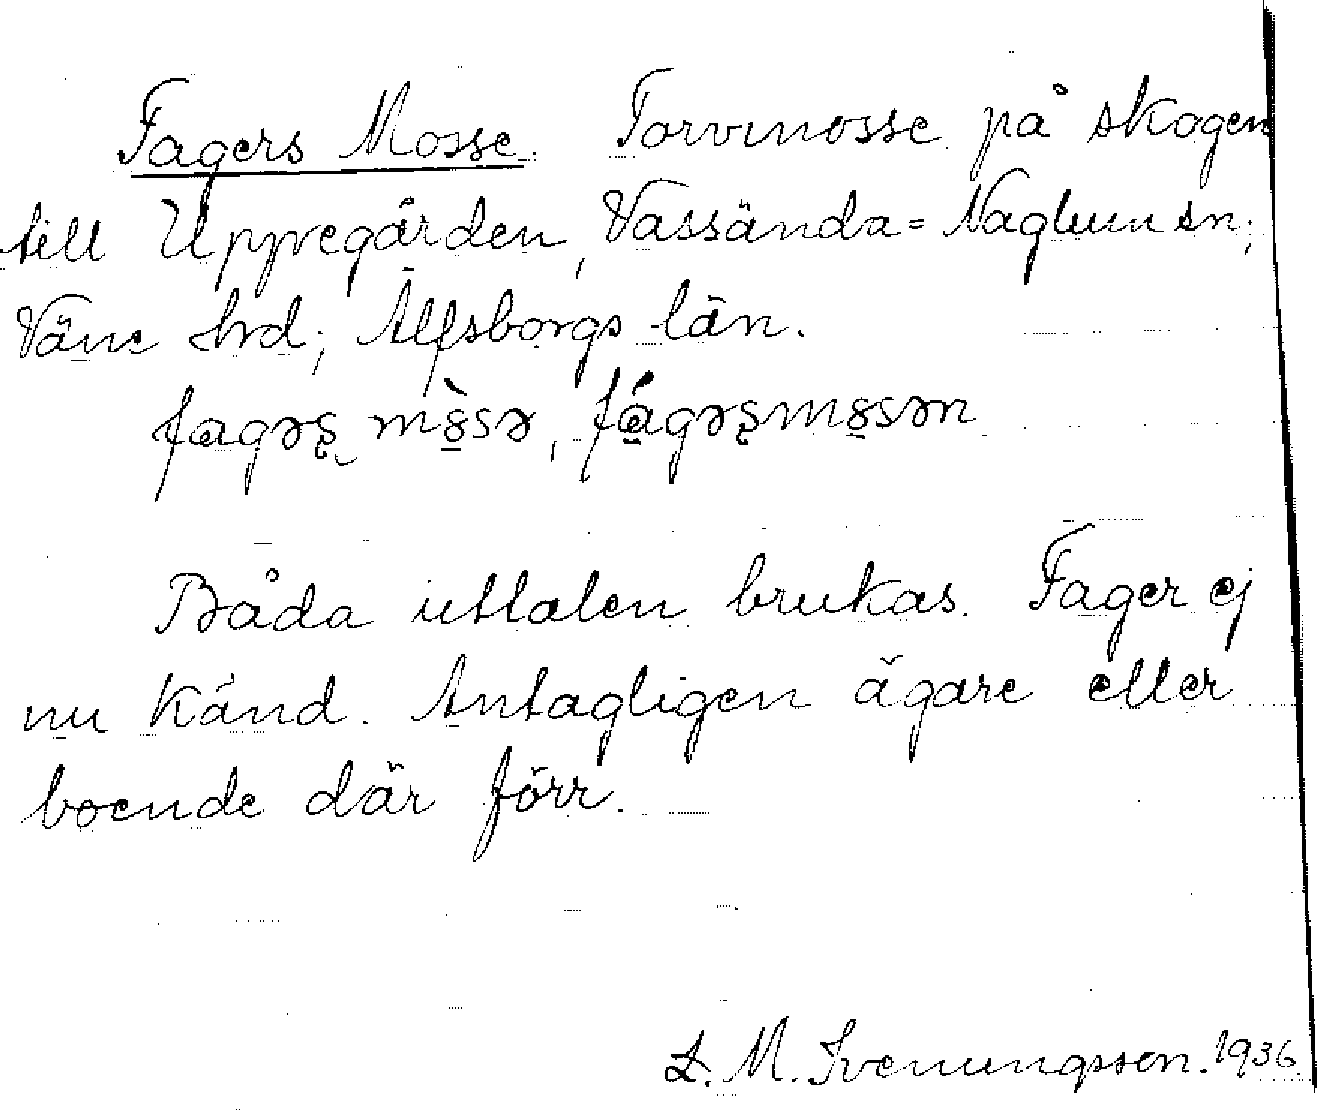 Fagers Mosse. Torvmosse på skogen
till Uppregården, Vassända=Naglum sn;
Väne hrd; Älfsborgs län.
fagəʂ m8̀sə, fágəʂm8sən
Båda uttalen brukas. Fager ej
nu känd. Antagligen ägare eller
boende där förr.
L. M. Svenungsson. 1936.